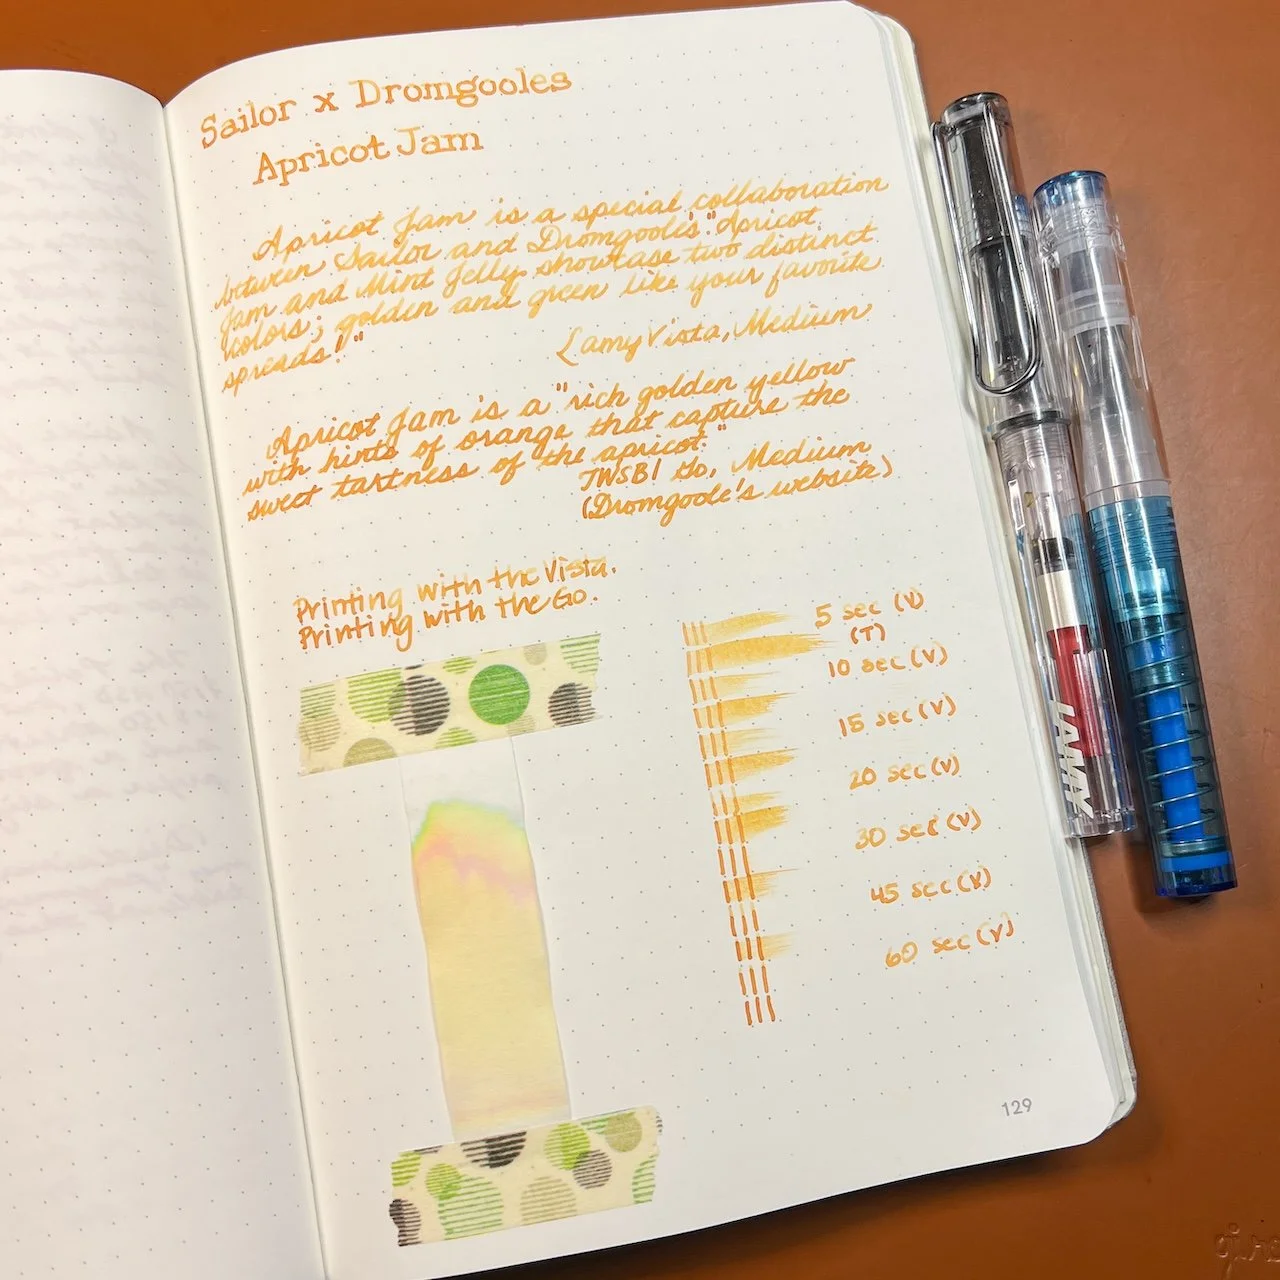 Sailor x Dromgooles
Apricot Jam
Apricot Jam is a special collaboration
between Sailor and Dromgoole's. "Apricot
Jam and Mint Jelly showcase two distinct
colors; golden and green like your favorite
spreads!"
Lamy Vista, Medium
Apricot Jam is a "rich golden yellow
with hints of orange that capture the
sweet tartness of the apricot."
TWSBI Go, Medium
(Dromgoole's website)
Printing with the Vista.
Printing with the Go.
5 sec (V)
(T)
10 sec (V)
15 sec (V)
20 sec (V)
30 sec (V)
45 sec (V)
60 sec (V)
129
LAMY